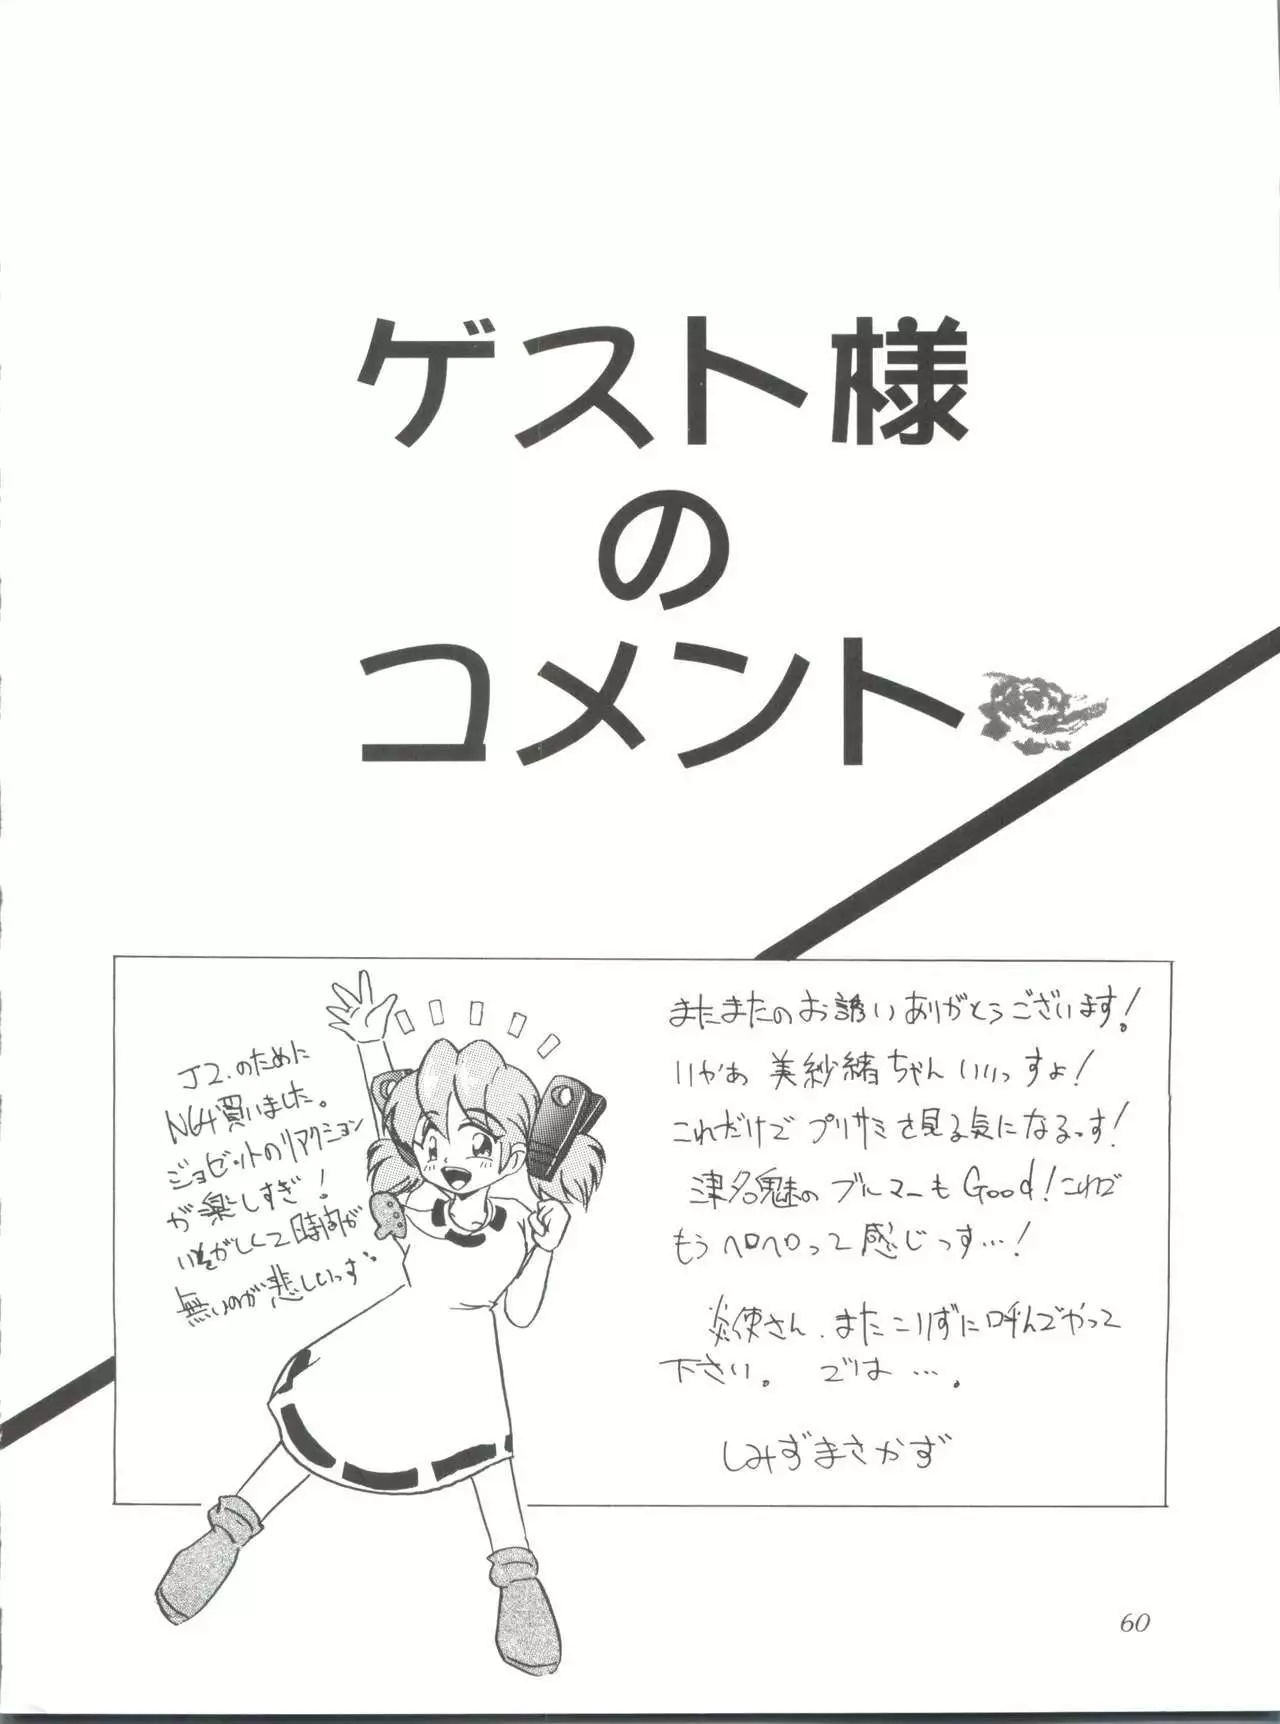 ゲスト様
の
コメント
またまたのお誘いありがとうございます!
いやあ 美紗緒ちゃんいいっすよ!
これだけでプリサミを見る気になるっす!
津名魅のブルマーもGood!これで
もうペロペロって感じっす…!
炎使さん、またこりずに呼んでやって
下さい。 では…。
しみずまさかず
J2.のために
N64買いました。
ジョゼットのリアクション
が楽しすぎ!
いそがしくて時間が
無いのが悲しいっす。
60